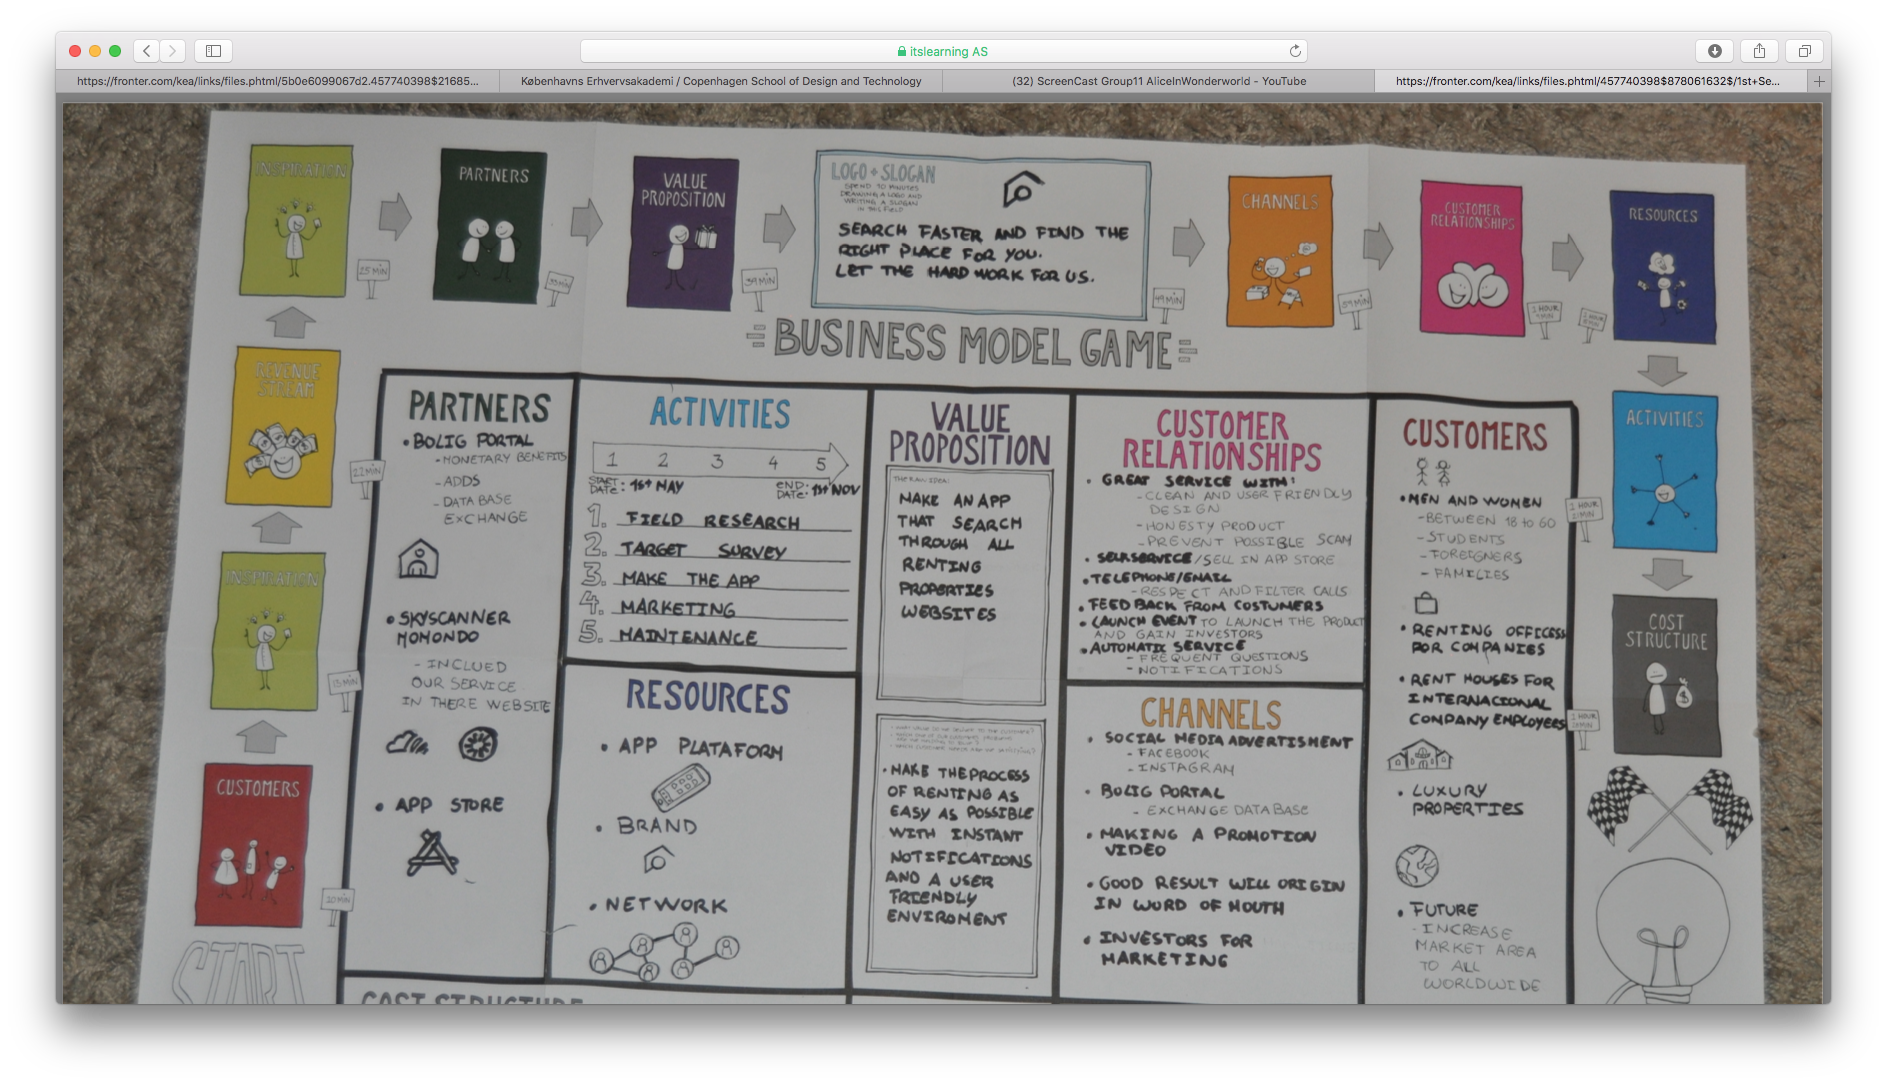 itslearning AS
https://fronter.com/kea/links/files.phtml/5b0e6099067d2.457740398$21685...
Københavns Erhvervsakademi / Copenhagen School of Design and Technology
(32) ScreenCast Group11 AliceInWonderworld - YouTube
https://fronter.com/kea/links/files.phtml/457740398$878061632$/1st+Se...
INSPIRATION
25 MIN
PARTNERS
VALUE
PROPOSITION
39 MIN
LOGO + SLOGAN
SPEND 10 MINUTES
DRAWING A LOGO AND
WRITING A SLOGAN
IN THIS FIELD
SEARCH FASTER AND FIND THE
RIGHT PLACE FOR YOU.
LET THE HARD WORK FOR US.
49 MIN
CHANNELS
59 MIN
CUSTOMER
RELATIONSHIPS
1 HOUR
1 HOUR
RESOURCES
= BUSINESS MODEL GAME =
REVENUE
STREAM
22 MIN
INSPIRATION
13 MIN
CUSTOMERS
10 MIN
START
PARTNERS
• BOLIG PORTAL
- MONETARY BENEFITS
- ADDS
- DATA BASE
EXCHANGE
• SKYSCANNER
MOMONDO
- INCLUED
OUR SERVICE
IN THERE WEBSITE
• APP STORE
ACTIVITIES
1 2 3 4 5
START DATE: 1st MAY
END DATE: 1st NOV
1. FIELD RESEARCH
2. TARGET SURVEY
3. MAKE THE APP
4. MARKETING
5. MAINTENANCE
RESOURCES
• APP PLATAFORM
• BRAND
• NETWORK
VALUE
PROPOSITION
THE RAW IDEA:
MAKE AN APP
THAT SEARCH
THROUGH ALL
RENTING
PROPERTIES
WEBSITES
• MAKE THE PROCESS
OF RENTING AS
EASY AS POSSIBLE
WITH INSTANT
NOTIFICATIONS
AND A USER
FRIENDLY
ENVIROMENT
CUSTOMER
RELATIONSHIPS
• GREAT SERVICE WITH:
- CLEAN AND USER FRIENDLY
DESIGN
- HONESTY PRODUCT
- PREVENT POSSIBLE SCAM
• SELFSERVICE/SELL IN APP STORE
• TELEPHONE/EMAIL
- RESPECT AND FILTER CALLS
• FEED BACK FROM COSTUMERS
• LAUNCH EVENT TO LAUNCH THE PRODUCT
AND GAIN INVESTORS
• AUTOMATIC SERVICE
- FREQUENT QUESTIONS
- NOTIFICATIONS
CHANNELS
• SOCIAL MEDIA ADVERTISMENT
- FACEBOOK
- INSTAGRAM
• BOLIG PORTAL
- EXCHANGE DATA BASE
• MAKING A PROMOTION
VIDEO
• GOOD RESULT WILL ORIGIN
IN WORD OF MOUTH
• INVESTORS FOR
MARKETING
CUSTOMERS
• MEN AND WOMEN
- BETWEEN 18 to 60
- STUDENTS
- FOREIGNERS
- FAMILIES
• RENTING OFFICESS
FOR COMPANIES
• RENT HOUSES FOR
INTERNACIONAL
COMPANY EMPLOYEES
• LUXURY
PROPERTIES
• FUTURE
- INCREASE
MARKET AREA
TO ALL
WORLDWIDE
ACTIVITIES
1 HOUR
COST
STRUCTURE
1 HOUR
COST STRUCTURE